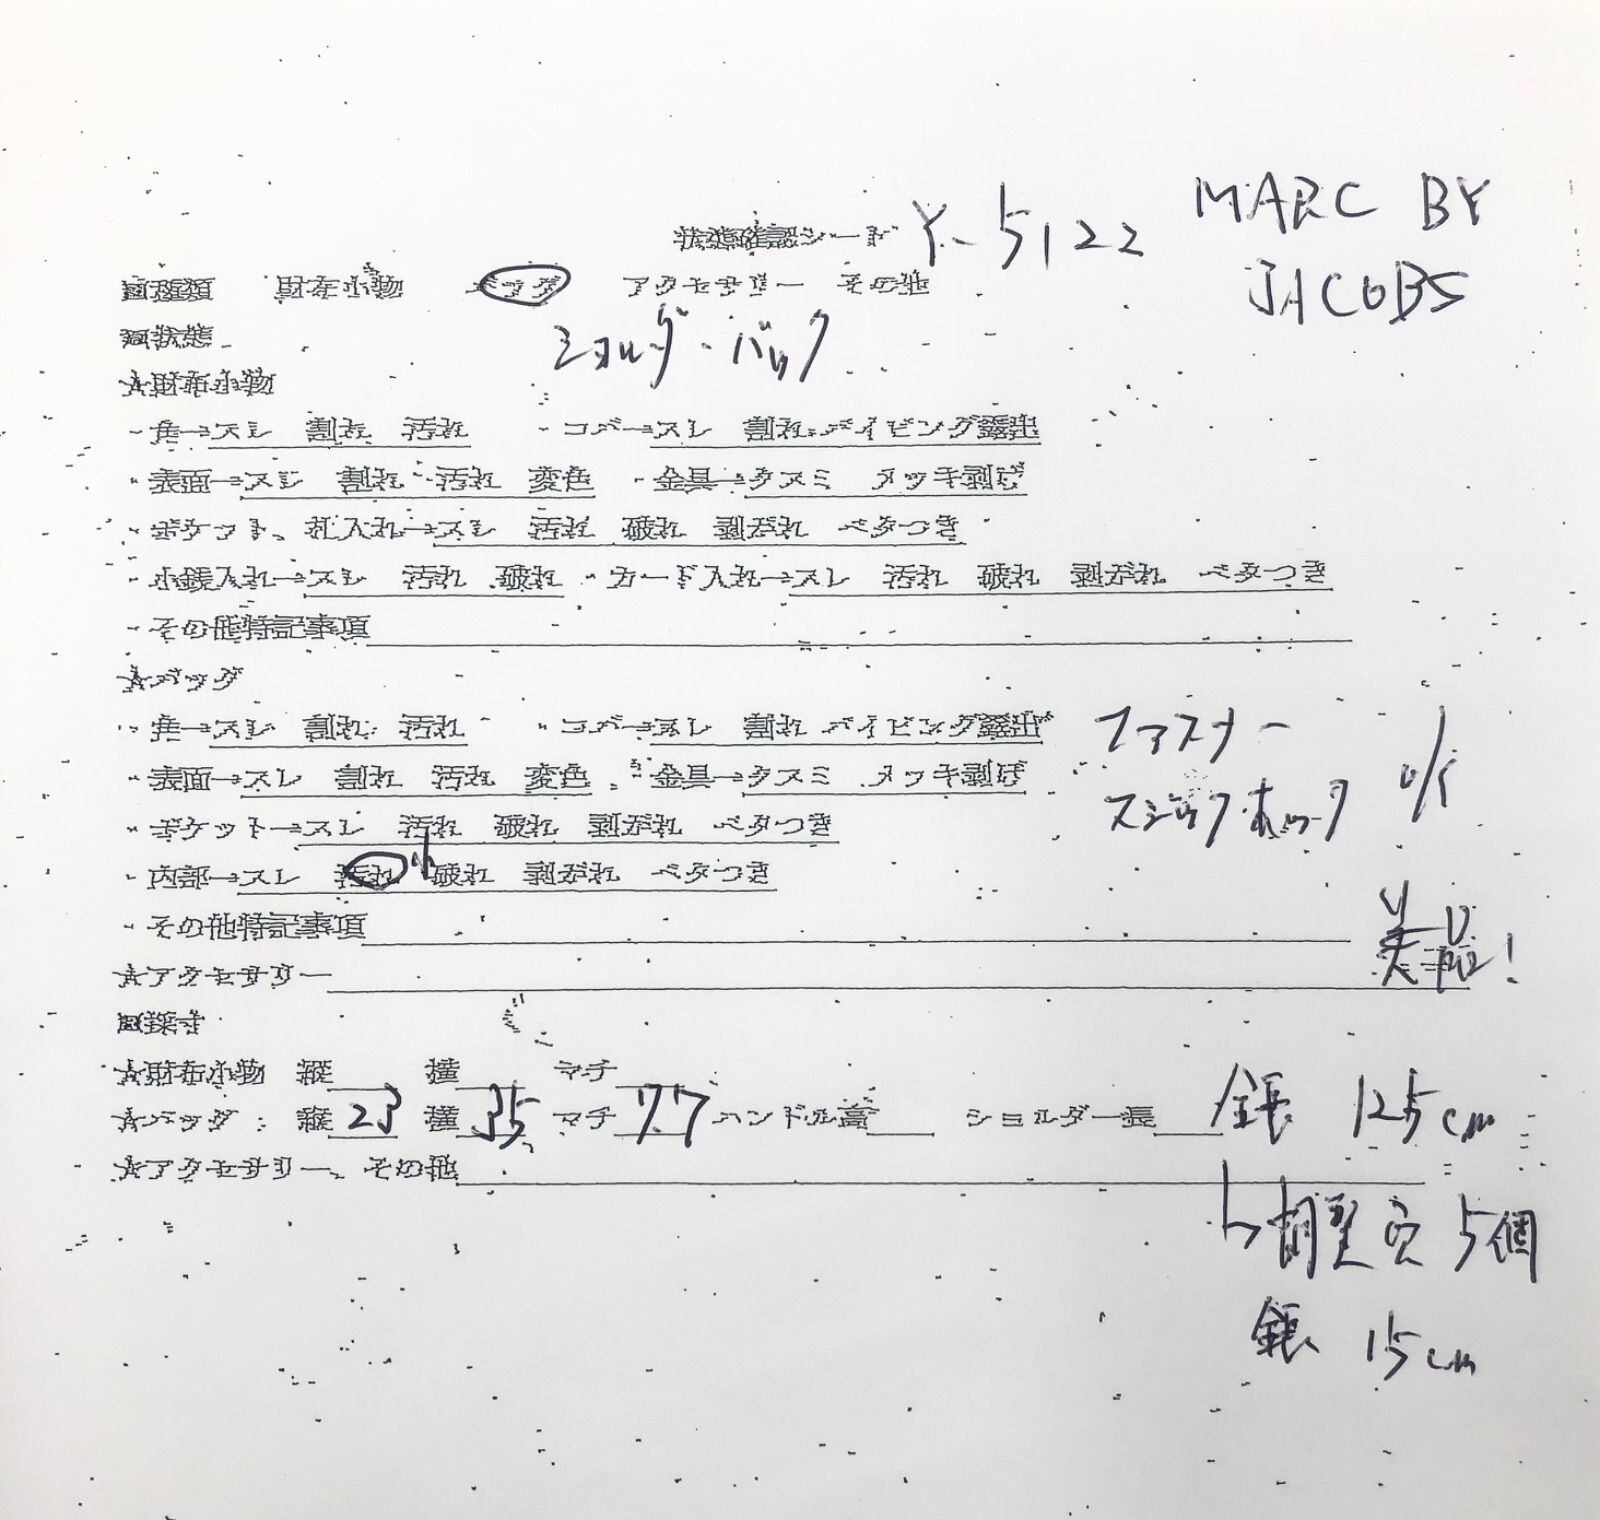 状態確認シート Y-5122 MARC BY JACOBS
回種類 財布小物 バッグ アクセサリー その他
ショルダーバック
回状態
☆財布小物
・角→スレ 割れ 汚れ ・コバ→スレ 割れ パイピング露出
・表面→スレ 割れ 汚れ 変色 ・金具→クスミ メッキ剥げ
・ポケット、札入れ→スレ 汚れ 破れ 剥がれ ベタつき
・小銭入れ→スレ 汚れ 破れ ・カード入れ→スレ 汚れ 破れ 剥がれ ベタつき
・その他特記事項
☆バッグ
・角→スレ 割れ 汚れ ・コバ→スレ 割れ パイピング露出
・表面→スレ 割れ 汚れ 変色 ・金具→クスミ メッキ剥げ
ファスナー
・ポケット→スレ 汚れ 破れ 剥がれ ベタつき
・内部→スレ 汚れ 小 破れ 剥がれ ベタつき
・その他特記事項
美品!
☆アクセサリー
回採寸
☆財布小物 縦 横 マチ
☆バッグ:縦23 横35 マチ7.7 ハンドル高 ショルダー長 全長 125cm
☆アクセサリー、その他
5個
15cm